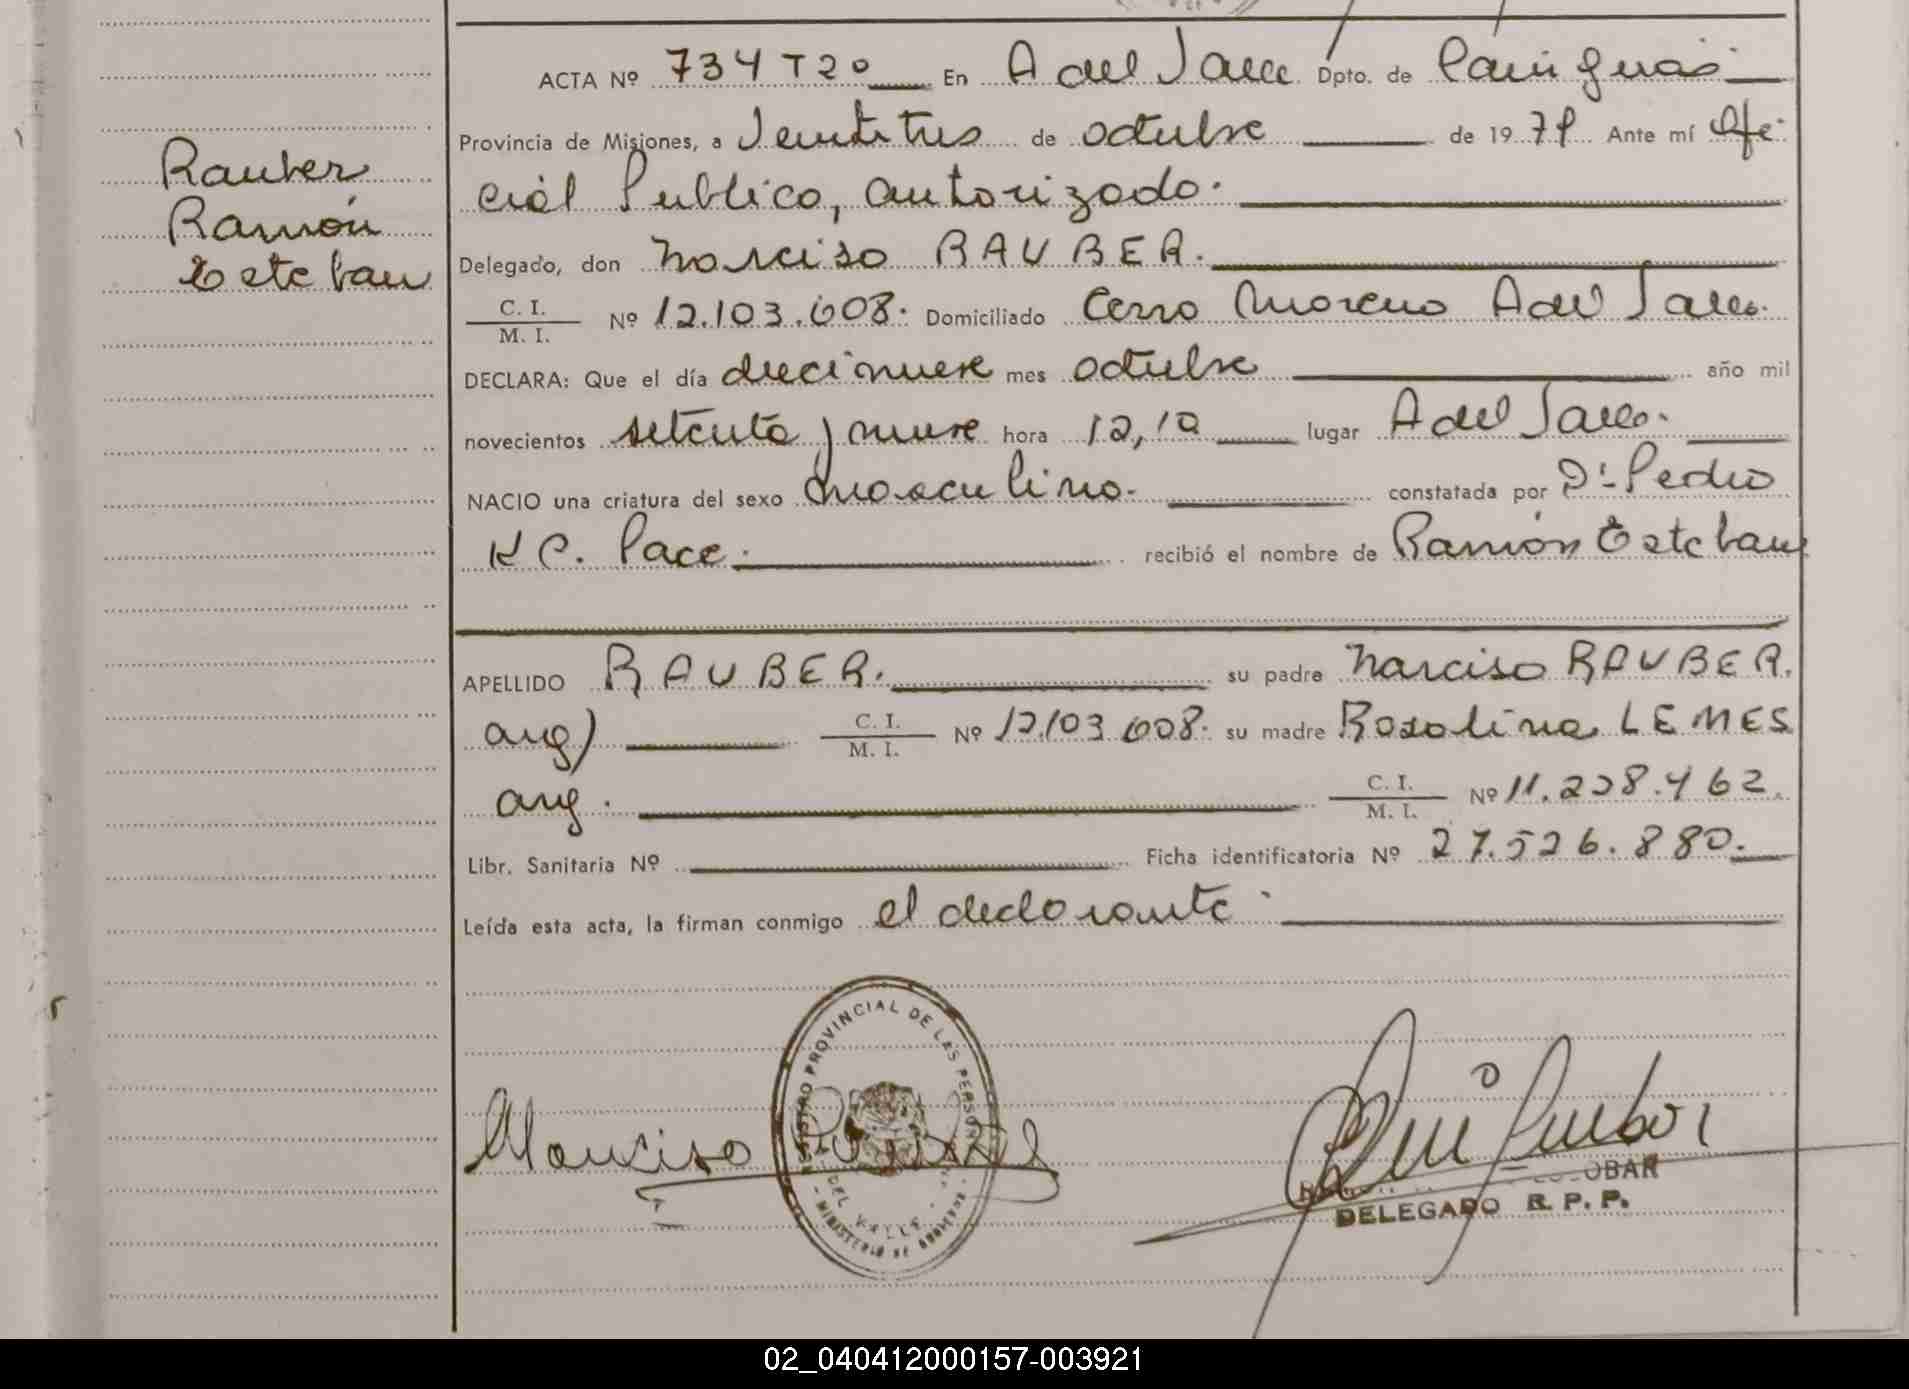 ACTA Nº 734 T20 En A del Valle Dpto. de Cainguás
Provincia de Misiones, a Veintitres de octubre de 1979 Ante mí Ofi-
cial Publico, autorizado.
Rauber
Ramón
Esteban
Delegado, don Narciso RAUBER.
C. I. / M. I. Nº 12.103.608. Domiciliado Cerro Moreno A del Valle.
DECLARA: Que el día diecinueve mes octubre año mil
novecientos setenta y nueve hora 12,10 lugar A del Valle.
NACIO una criatura del sexo masculino. constatada por Dr. Pedro
K C. Pace. recibió el nombre de Ramón Esteban
APELLIDO RAUBER. su padre Narciso RAUBER.
arg) C. I. / M. I. Nº 12.103.608. su madre Rosalina LEMES
arg. C. I. / M. I. Nº 11.228.462.
Libr. Sanitaria Nº Ficha identificatoria Nº 27.526.880.
Leída esta acta, la firman conmigo el declarante.
PROVINCIAL DE LAS PERSONAS
DEL VALLE
Narciso
OBAR
DELEGADO R. P. P.
02_040412000157-003921